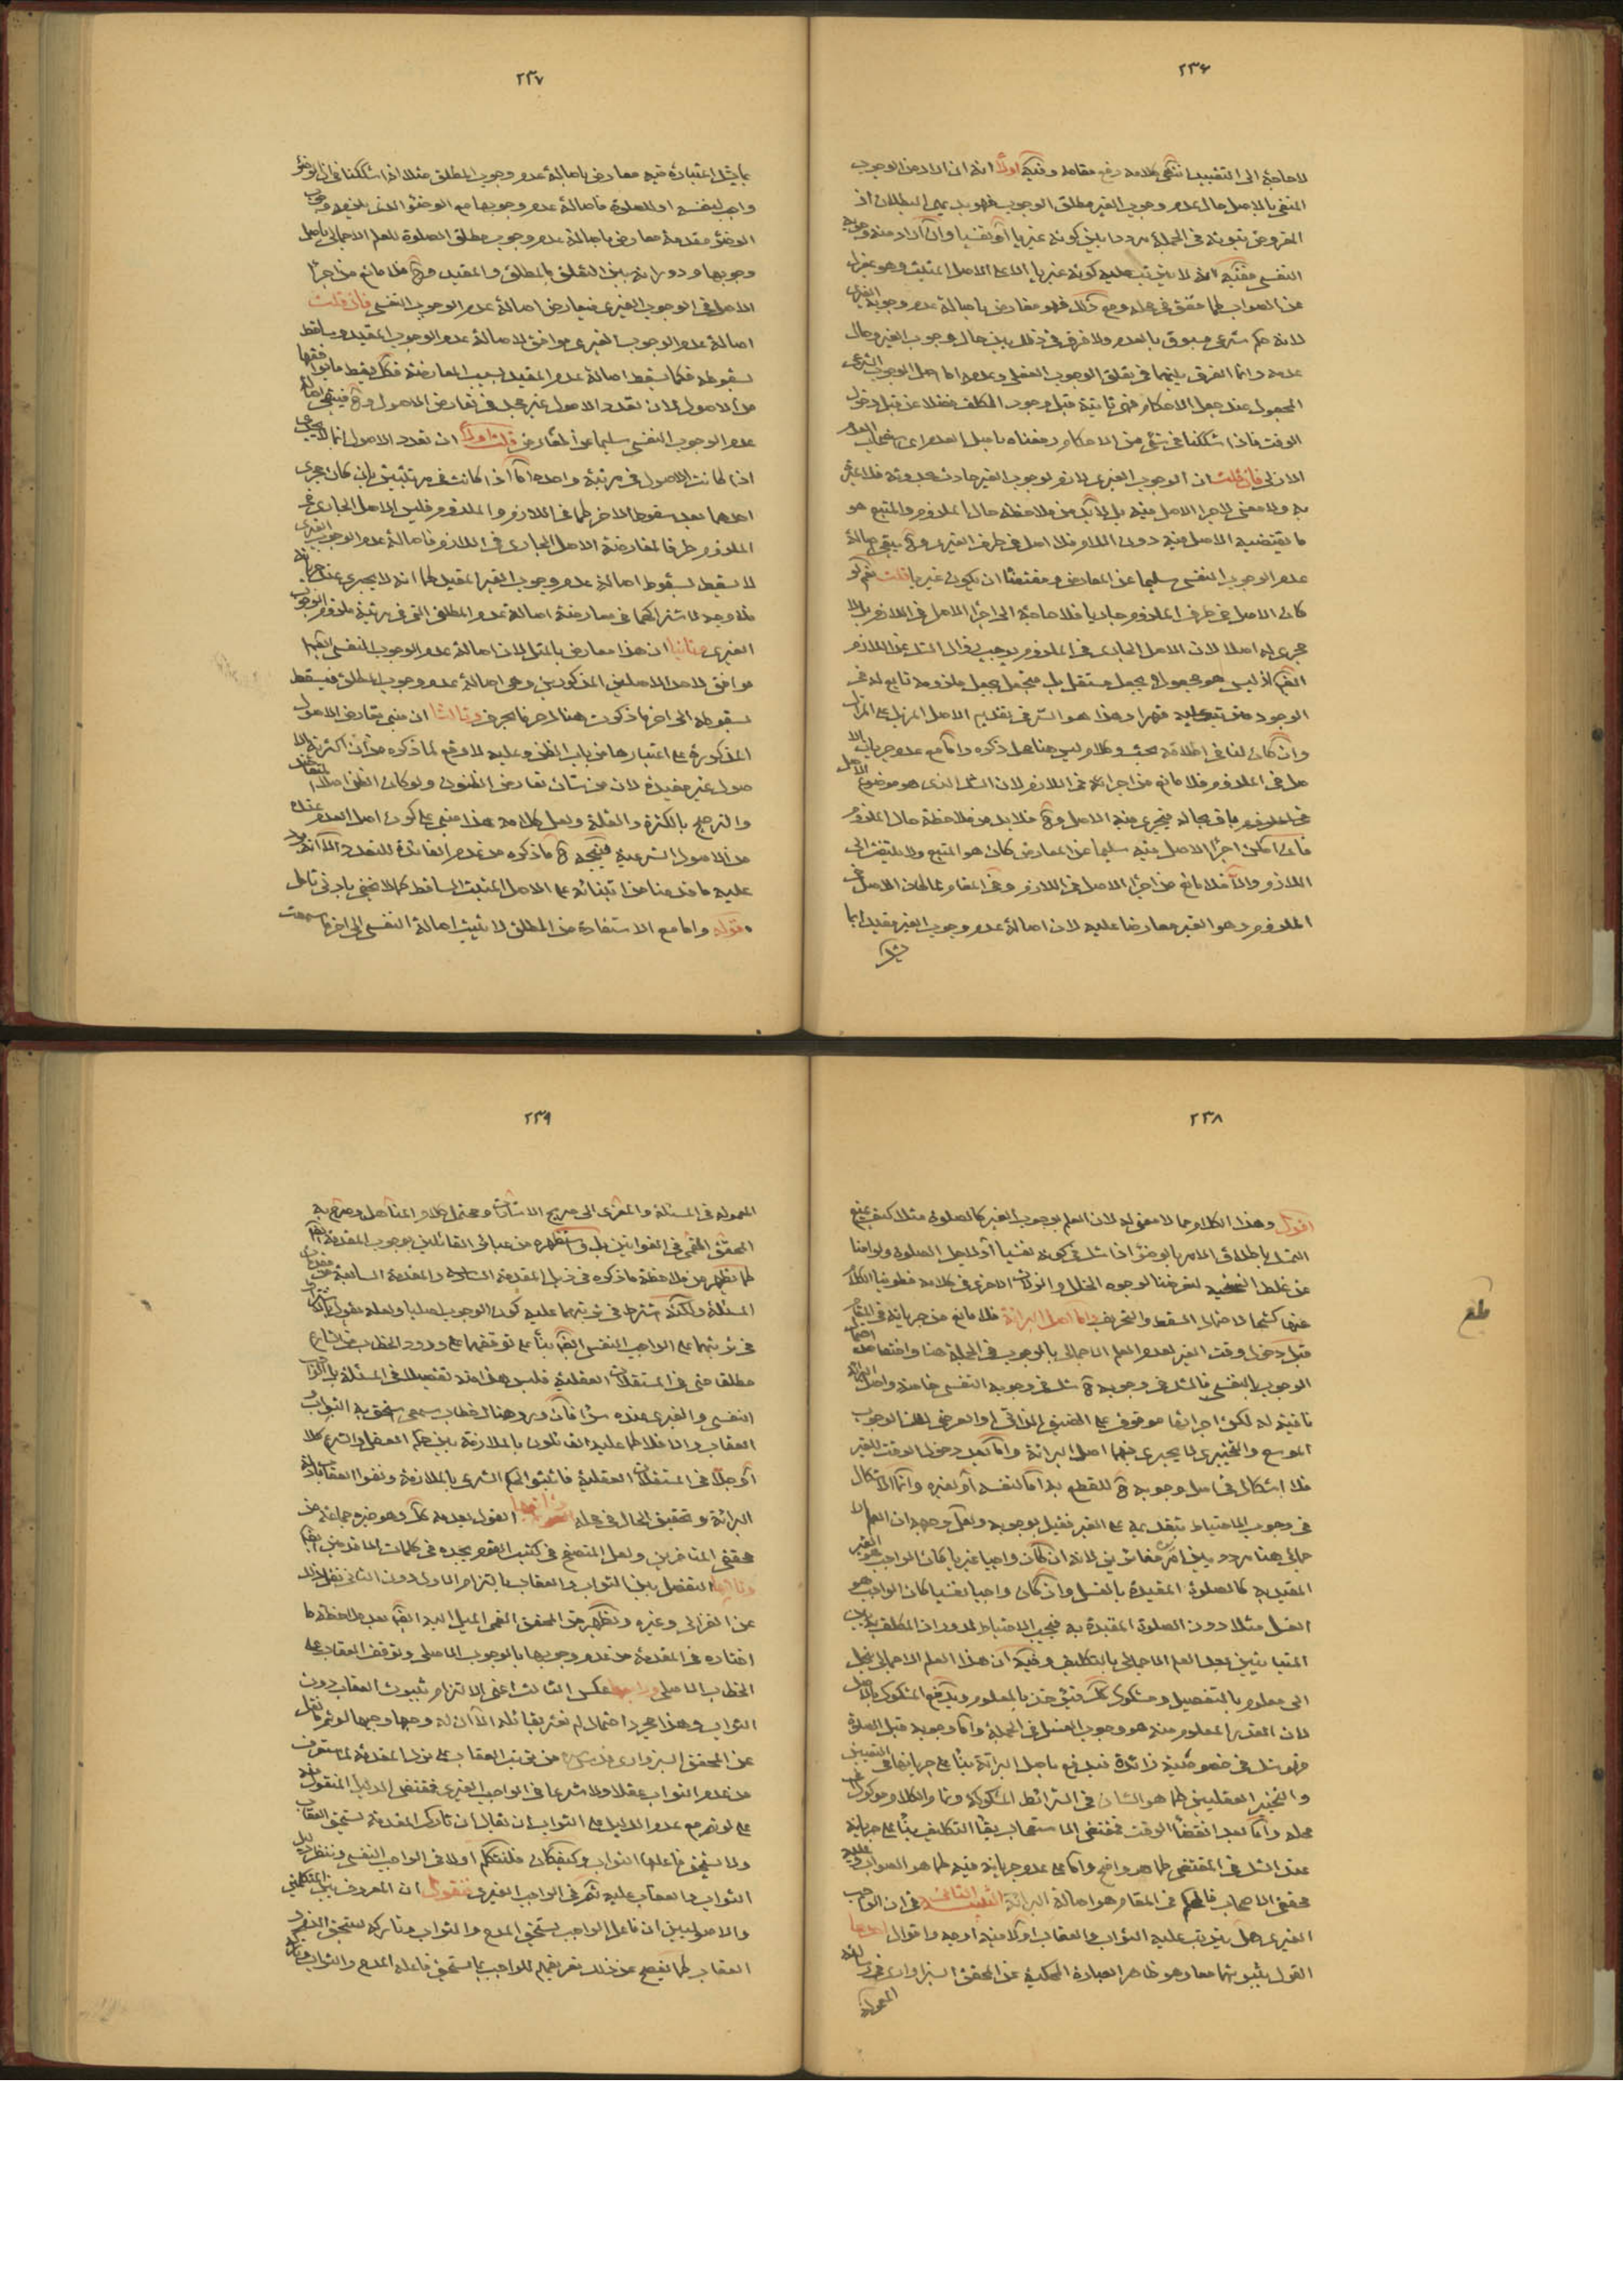 ٢٣۶
لا حاجة الى التقييد انتهى كلامه رفع مقامه وفيه اولا انه ان اراد من الوجوب
المنفى بالاصل حال عدم وجوب الغير مطلق الوجوب فهو بديهى البطلان اذ
المفروض ثبوته فى الجملة مرددا بين كونه غيريا او نفسيا وان اراد منه وجوبه
النفسى ففيه انه لا يترتب عليه كونه غيريا الا على الاصل المثبت وهو بمعزل
عن الصواب كما حقق فى محله ومع ذلك فهو معارض باصالة عدم وجوبه الغيرى
لانه حكم شرعى مسبوق بالعدم ولا فرق فى ذلك بين حال وجوب الغير وحال
عدمه وانما الفرق بينهما فى تعلق الوجوب الفعلى وعدمه اما اصل الوجوب الشرعى
المجعول عند جعل الاحكام فهى ثابتة قبل وجود المكلف فضلا عن قبل دخول
الوقت فاذا شككنا فى شئ من الاحكام دفعناه باصل العدم اى استصحاب العدم
الازلى فان قلت ان الوجوب الغيرى لازم لوجوب الغير حادث بحدوثه فلا عبرة
به ولا معنى لاجراء الاصل فيه بل لا بد من ملاحظة حال الملزوم والمتبع هو
ما يقتضيه الاصل فيه دون اللازم فلا اصل فى طرف الغيرى وح يبقى اصالة
عدم الوجوب النفسى سليما عن المعارض ومقتضاه ان يكون غيريا قلت نعم لو
كان الاصل فى طرف الملزوم جاريا فلا حاجة الى اجراء الاصل فى اللازم بل لا
مجرى له اصلا لان الاصل الجارى فى الملزوم يوجب زوال الشك عن اللازم
ايضا اذ ليس هو مجعولا بجعل مستقل بل منجعل بجعل ملزومه تابع له فى
الوجود مترتب عليه قهرا وهذا هو السر فى تقديم الاصل المزيل على المزال
وان كان لنا فى اطلاقه بحث وكلام ليس هنا محل ذكره واما مع عدم جريان الا
صل فى الملزوم فلا مانع من اجرائه فى اللازم لان الشك الذى هو موضوع الاصل
فى الملزوم باق بحاله فيجرى فيه الاصل وح فلا بد من ملاحظة حال الملزوم
فان امكن اجراء الاصل فيه سليما عن المعارض كان هو المتبع ولا يلتفت الى
اللازم والا فلا مانع من اجراء الاصل فى اللازم وفى المقام لما كان الاصل فى
الملزوم وهو الغير معارضا عليه لان اصالة عدم وجوب الغير مقيدا بما
يشك
٢٣٧
بما يشك اعتباره فيه معارض باصالة عدم وجوب المطلق مثلا اذا شككنا فى ان الوضوء
واجب لنفسه او للصلوة فاصالة عدم وجوبها مع الوضوء الذى يلزمه وجوب
الوضوء مقدمة معارض باصالة عدم وجوب مطلق الصلوة للعلم الاجمالى باصل
وجوبها ودورانه بين التعلق بالمطلق والمقيد وح فلا مانع من اجراء
الاصل فى الوجوب الغيرى فيعارض اصالة عدم الوجوب النفسى فان قلت
اصالة عدم الوجوب الغيرى موافق لاصالة عدم الوجوب المقيد وساقط
بسقوطه فكما تسقط اصالة عدم المقيد بسبب المعارضة فكك يسقط ما يوافقها
من الاصول لان تعدد الاصول غير مجد فى تعارض الاصول وح فيبقى اصالة
عدم الوجوب النفسى سليما عن المعارض قلت اولا ان تعدد الاصول انما لا يجدى
اذا كانت الاصول فى مرتبة واحدة اما اذا كانت فى مرتبتين بان كان مجرى
احدهما بعد سقوط الاخر كما فى اللازم والملزوم فليس الاصل الجارى فى
الملزوم طرفا لمعارضة الاصل الجارى فى اللازم فاصالة عدم الوجوب الغيرى
لا يسقط بسقوط اصالة عدم وجوب الغير المقيد كما انه لا يجرى عند جريانه
فلا وجه لاشتراكهما فى معارضة اصالة عدم المطلق التى فى مرتبة ملزوم الوجوب
الغيرى وثانيا ان هذا معارض بالمثل لان اصالة عدم الوجوب النفسى ايضا
موافق لاحد الاصلين المذكورين وهى اصالة عدم وجوب المطلق فيسقط
بسقوطه الى اخر ما ذكرت هناك حرفا بحرف وثالثا ان مبنى تعارض الاصول
المذكورة على اعتبارها من باب الظن وعليه لا وقع لما ذكره من ان اكثرية الا
صول غير مفيدة لان من شان تعارض الظنون ولو كان الظن اصلا التعاضد
والترجيح بالكثرة والقلة ولعل كلامه هذا مبنى على كون اصل العدم عنده
من الاصول الشرعية فيتجه ح ما ذكره من عدم الفائدة للتعدد الا انه يرد
عليه ما قدمنا من ابتنائه على الاصل المثبت الساقط كما لا يخفى بادنى تامل
قوله واما مع الاستفادة من المطلق لا تثبت اصالة النفسى الى اخر ما سمعت
٢٣٨
اقول وهذا الكلام مما لا معنى له لان العلم بوجوب الغير كالصلوة مثلا كيف يمنع
التمسك باطلاق الامر بالوضوء اذا شك فى كونه نفسيا او لاجل الصلوة ولو امنا
من غلط النسخة لعرضنا لوجوه الخلل والزلات الاخرى فى كلامه فطوينا الكلام
عنها كشحا لاحتمال السقط والتحريف واما اصل البرائة فلا مانع من جريانه فى المقام
قبل دخول وقت الغير لعدم العلم الاجمالى بالوجوب فى الجملة هنا واختصاص احتمال
الوجوب بالنفسى فالشك فى وجوبه ح شك فى وجوبه النفسى خاصة واصل البرائة
نافية له لكون اجرائها موقوف على المضيق الذاتى او العرضى لان الوجوب
الموسع والتخييرى لا يجرى فيهما اصل البرائة واما بعد دخول الوقت للغير
فلا اشكال فى اصل وجوبه ح للقطع به اما لنفسه او لغيره وانما الاشكال
فى وجوب الاحتياط بتقديمه على الغير فقيل بوجوبه ولعل وجهه ان العلم الا
جمالى هنا مردد بين امرين متغائرين لانه ان كان واجبا غيريا كان الواجب هو الغير
المقيد به كالصلوة المقيدة بالغسل وان كان واجبا نفسيا كان الواجب هو
الغسل مثلا دون الصلوة المقيدة به فيجب الاحتياط لدوران المكلف به بين
المتباينين بعد العلم الاجمالى بالتكليف وفيه ان هذا العلم الاجمالى ينحل
الى معلوم بالتفصيل ومشكوك كك فيؤخذ بالمعلوم ويدفع المشكوك بالاصل
لان القدر المعلوم منه هو وجوب الغسل فى الجملة واما وجوبه قبل الصلوة
فهو شك فى خصوصية زائدة فيدفع باصل البرائة بناء على جريانها فى التعيين
والتخيير العقليين كما هو الشان فى الشرائط المشكوكة وتمام الكلام موكول الى
محله واما بعد انقضاء الوقت فمقتضى الاستصحاب بقاء التكليف بناء على جريانه
عند الشك فى المقتضى كما هو واضح واما على عدم جريانه فيه كما هو الصواب وعليه
محققى الاصحاب فالحكم فى المقام هو اصالة البرائة التنبيه الثانى فى ان الواجب
الغيرى هل يترتب عليه الثواب والعقاب او لا فيه اوجه واقوال احدها
القول بثبوتهما معا وهو ظاهر العبارة المحكية عن المحقق السبزوارى فى رسالته
المعمولة
بلغ
٢٣٩
المعمولة فى المسئلة والمعزى الى صريح الاشارات ومحتمل كلام المناهل وصرح به
المحقق القمى فى القوانين بل واستظهره من عبائر القائلين بوجوب المقدمة ايضا
كما يظهر من ملاحظة ما ذكره فى ذيل المقدمة السادسة والمقدمة السابعة من مقدمات
المسئلة ولكنه اشترط فى ترتبهما عليه كون الوجوب اصليا ولعله يقول باشتراطه
فى ترتبهما على الواجب النفسى ايضا بناء على توقفهما على ورود الخطاب من الشارع
مطلقا حتى فى المستقلات العقلية فليس هذا منه تفصيلا فى المسئلة بل الواجب
النفسى والغيرى عنده سواء فان ورد هناك خطاب سمعى استحق به الثواب و
العقاب والا فلا كما عليه القائلون بالملازمة بين حكم العقل والشرع كلا
او جلا فى المستقلات العقلية فاثبتوا الحكم الشرعى بالملازمة ونفوا العقاب بادلة
البرائة وتحقيق الحال فى محله وثانيها القول بعدمه كك وهو خيرة جماعة من
محققى المتاخرين ولعل المتصفح فى كتب القوم يجده فى كلمات المتقدمين ايضا
وثالثها التفصيل بين الثواب والعقاب بالتزام الاول دون الثانى نقل ذلك
عن الغزالى وغيره ويظهر من المحقق القمى الميل اليه ايضا بعد ملاحظة ما
اختاره فى المقدمة من عدم وجوبها بالوجوب الاصلى وتوقف العقاب على
الخطاب الاصلى ورابعها عكس الثالث اعنى الالتزام بثبوت العقاب دون
الثواب وهذا مجرد احتمال لم نعثر بقائله الا ان له وجها وجيها لو تم ما نقل
عن المحقق السبزوارى قدس سره من ترتب العقاب على ترك المقدمة لما ستعرف
من عدم الثواب عقلا ولا شرعا فى الواجب الغيرى فمقتضى الدليل المنقول عنه
على لو تم مع عدم الدليل على الثواب ان يقال ان تارك المقدمة يستحق العقاب
ولا يستحق فاعلها الثواب وكيف كان فلنتكلم اولا فى الواجب النفسى وننظر دليل
الثواب والعقاب عليه ثم فى الواجب الغيرى فنقول ان المعروف بين المتكلمين
والاصوليين ان فاعل الواجب يستحق المدح والثواب وتاركه يستحق الذم و
العقاب كما يفصح عن ذلك تعريفهم للواجب بما يستحق فاعله المدح والثواب وتاركه